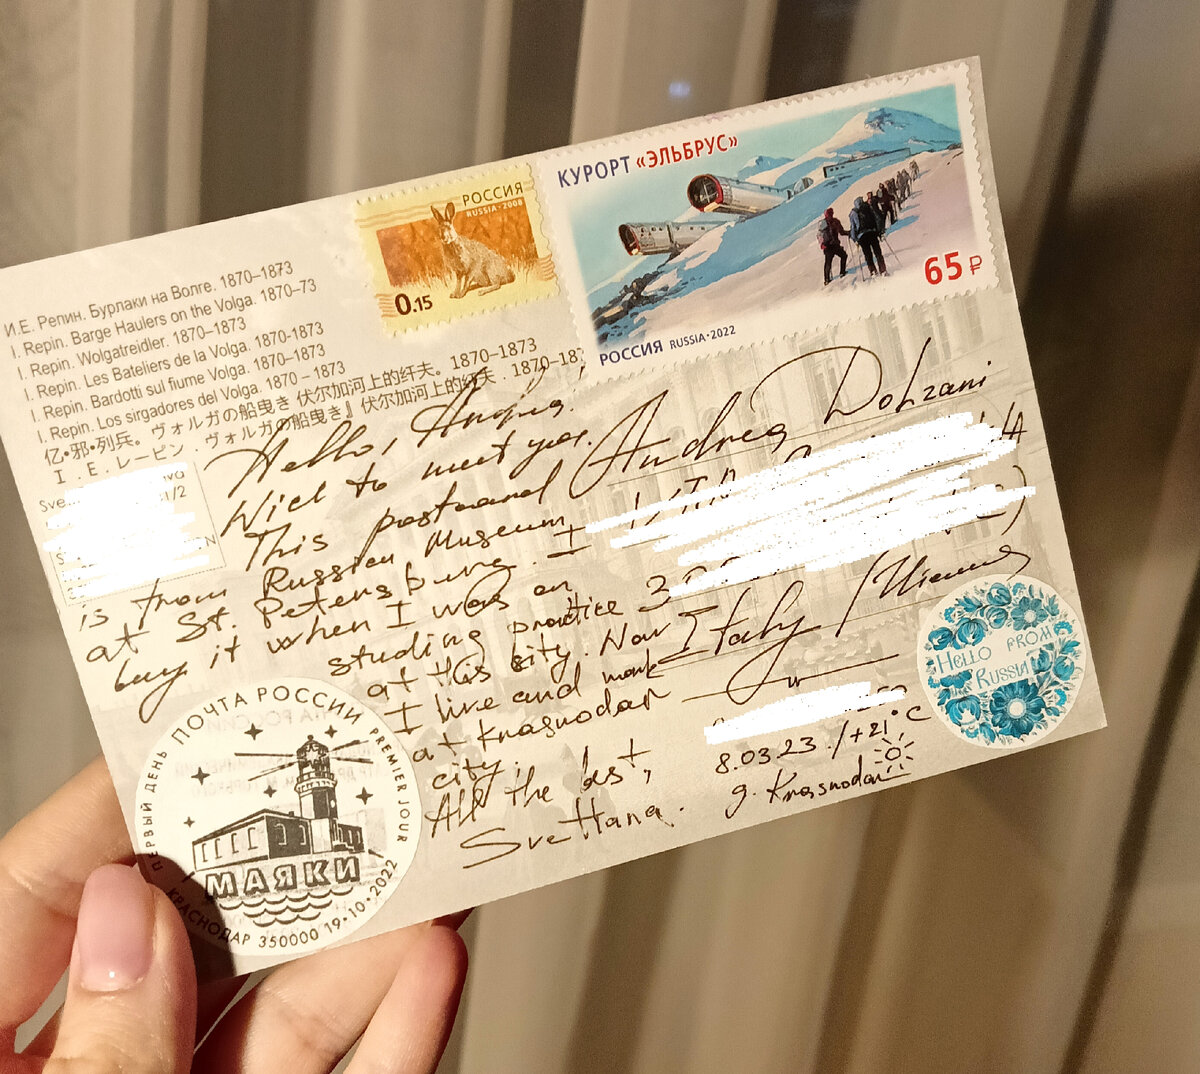 И.Е. Репин. Бурлаки на Волге. 1870–1873
I. Repin. Barge Haulers on the Volga. 1870–73
I. Repin. Wolgatreidler. 1870–1873
I. Repin. Les Bateliers de la Volga. 1870-1873
I. Repin. Bardotti sul fiume Volga. 1870–1873
I. Repin. Los sirgadores del Volga. 1870 – 1873
亿•邪•列兵。ヴォルガの船曳き 伏尔加河上的纤夫。1870–1873
I . E . レーピン . ヴォルガの船曳き』 伏尔加河上的纤夫 . 1870–187
РОССИЯ
RUSSIA • 2008
0.15
КУРОРТ «ЭЛЬБРУС»
65 ₽
РОССИЯ RUSSIA • 2022
Sve
/2
Hello,
to meet you.
This postcard
is from Russian Museum
at St. Petersburg. I
buy it when I was on
studing practice
at this city. Now
I live and work
at Krasnodar
city.
All the best,
Svettana.
Andrea Dolzani
Italy /
8.03.23 /+21°C
g. Krasnodar
HELLO FROM
RUSSIA
ПОЧТА РОССИИ
ПЕРВЫЙ ДЕНЬ
PREMIER JOUR
МАЯКИ
КРАСНОДАР 350000 19•10•2022